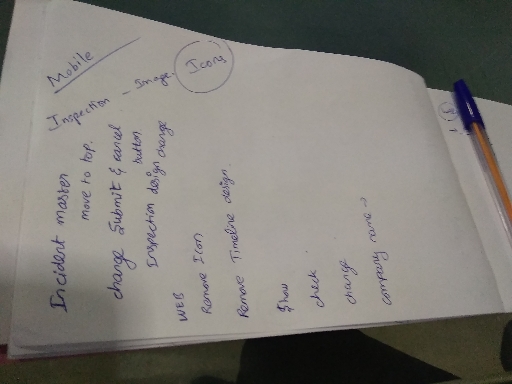 Mobile
Inspection - Image Icons
Incident master
move to top.
change Submit & cancel
button
Inspection design change
WEB
Remove Icon
Remove Timeline design.
Show
check
change
company name →